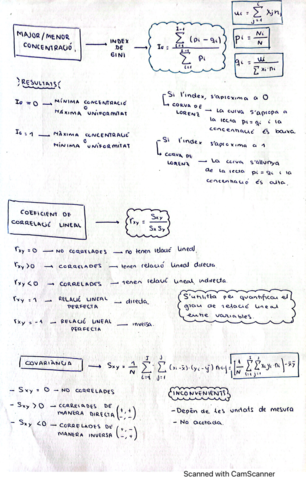 MAJOR/MENOR CONCENTRACIÓ. → INDEX DE GINI → I_G = Σ(pi - qi) / Σ pi
ui = Σ xj nj
pi = Ni / N
qi = ui / Σ xi·ni
RESULTATS
IG = 0 → MÍNIMA CONCENTRACIÓ O MÀXIMA UNIFORMITAT
IG = 1 → MÀXIMA CONCENTRACIÓ MÍNIMA UNIFORMITAT
Si l'index, s'aproxima a 0
CORVA DE LORENZ → La curva s'apropa a
la recta pi = qi i la
concentració és baixa.
Si l'index s'aproxima a 1
CORVA DE LORENZ → La curva s'allunya
de la recta pi = qi i la
concentració és alta.
COEFICIENT DE CORRELACIÓ LINEAL → rxy = Sxy / Sx Sy
rxy = 0 → NO CORRELADES → no tenen relació lineal.
rxy > 0 → CORRELADES → tenen relació lineal directa
rxy < 0 → CORRELADES → tenen relació lineal, indirecta
rxy = 1 → RELACIÓ LINEAL PERFECTA → directa.
rxy = -1 → RELACIÓ LINEAL PERFECTA → inversa.
S'utilitza per quantificar el
grau de relació lineal
entre variables.
COVARIÀNCIA → Sxy = 1/N Σ Σ (xi - x̄)·(yj - ȳ)
- Sxy = 0 → NO CORRELADES
- Sxy > 0 → CORRELADES DE MANERA DIRECTA (+,+ -,-)
- Sxy < 0 → CORRELADES DE MANERA INVERSA
INCONVENIENTS
- Depèn de les unitats de mesura
- No acotada.
Scanned with CamScanner